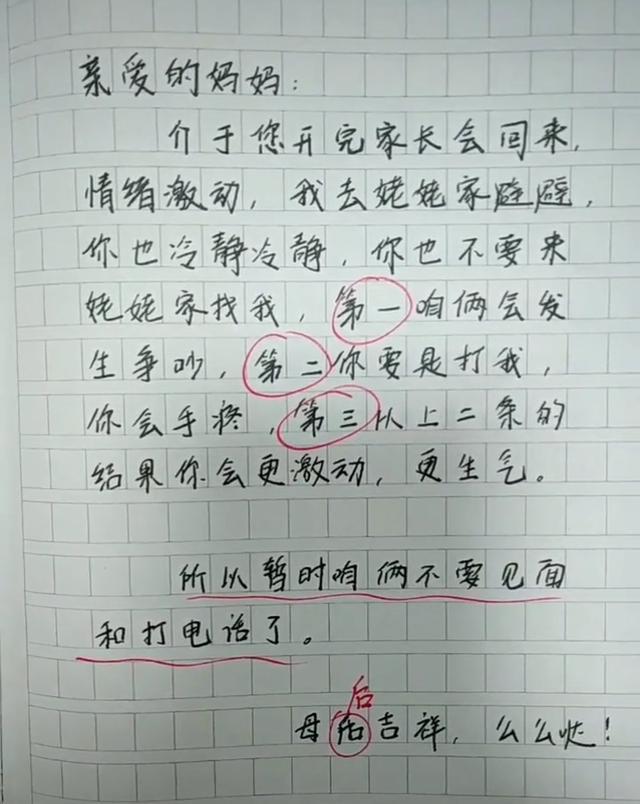 亲爱的妈妈：
介于您开完家长会回来，
情绪激动，我去姥姥家避避，
你也冷静冷静，你也不要来
姥姥家找我，第一咱俩会发
生争吵，第二你要是打我，
你会手疼，第三以上二条的
结果你会更激动，更生气。
所以暂时咱俩不要见面
和打电话了。
后
母后吉祥，么么哒！